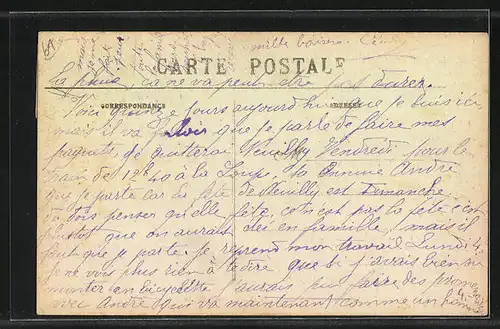 mille baisers.
CARTE POSTALE
la pluie, ça ne va peut être pas durer.
CORRESPONDANCE
ADRESSE
Voici quinze jours aujourd'hui que je suis ici
mais il va falloir que je parle de faire mes
paquets, je quitterai Neuilly Vendredi pour le
train de 12h40 à la Loupe. Ça ennuie André
que je parte car la fête de Neuilly est Dimanche
tu dois penser qu'elle fête, ce n'est pas la fête c'est
plutôt que on aurait été en famille, mais il
faut que je parte. Je reprend mon travail Lundi
Je ne vois plus rien à te dire que si j'avais bien su
monter en bicyclette j'aurais pu faire des promenades
avec André qui va maintenant comme un homme